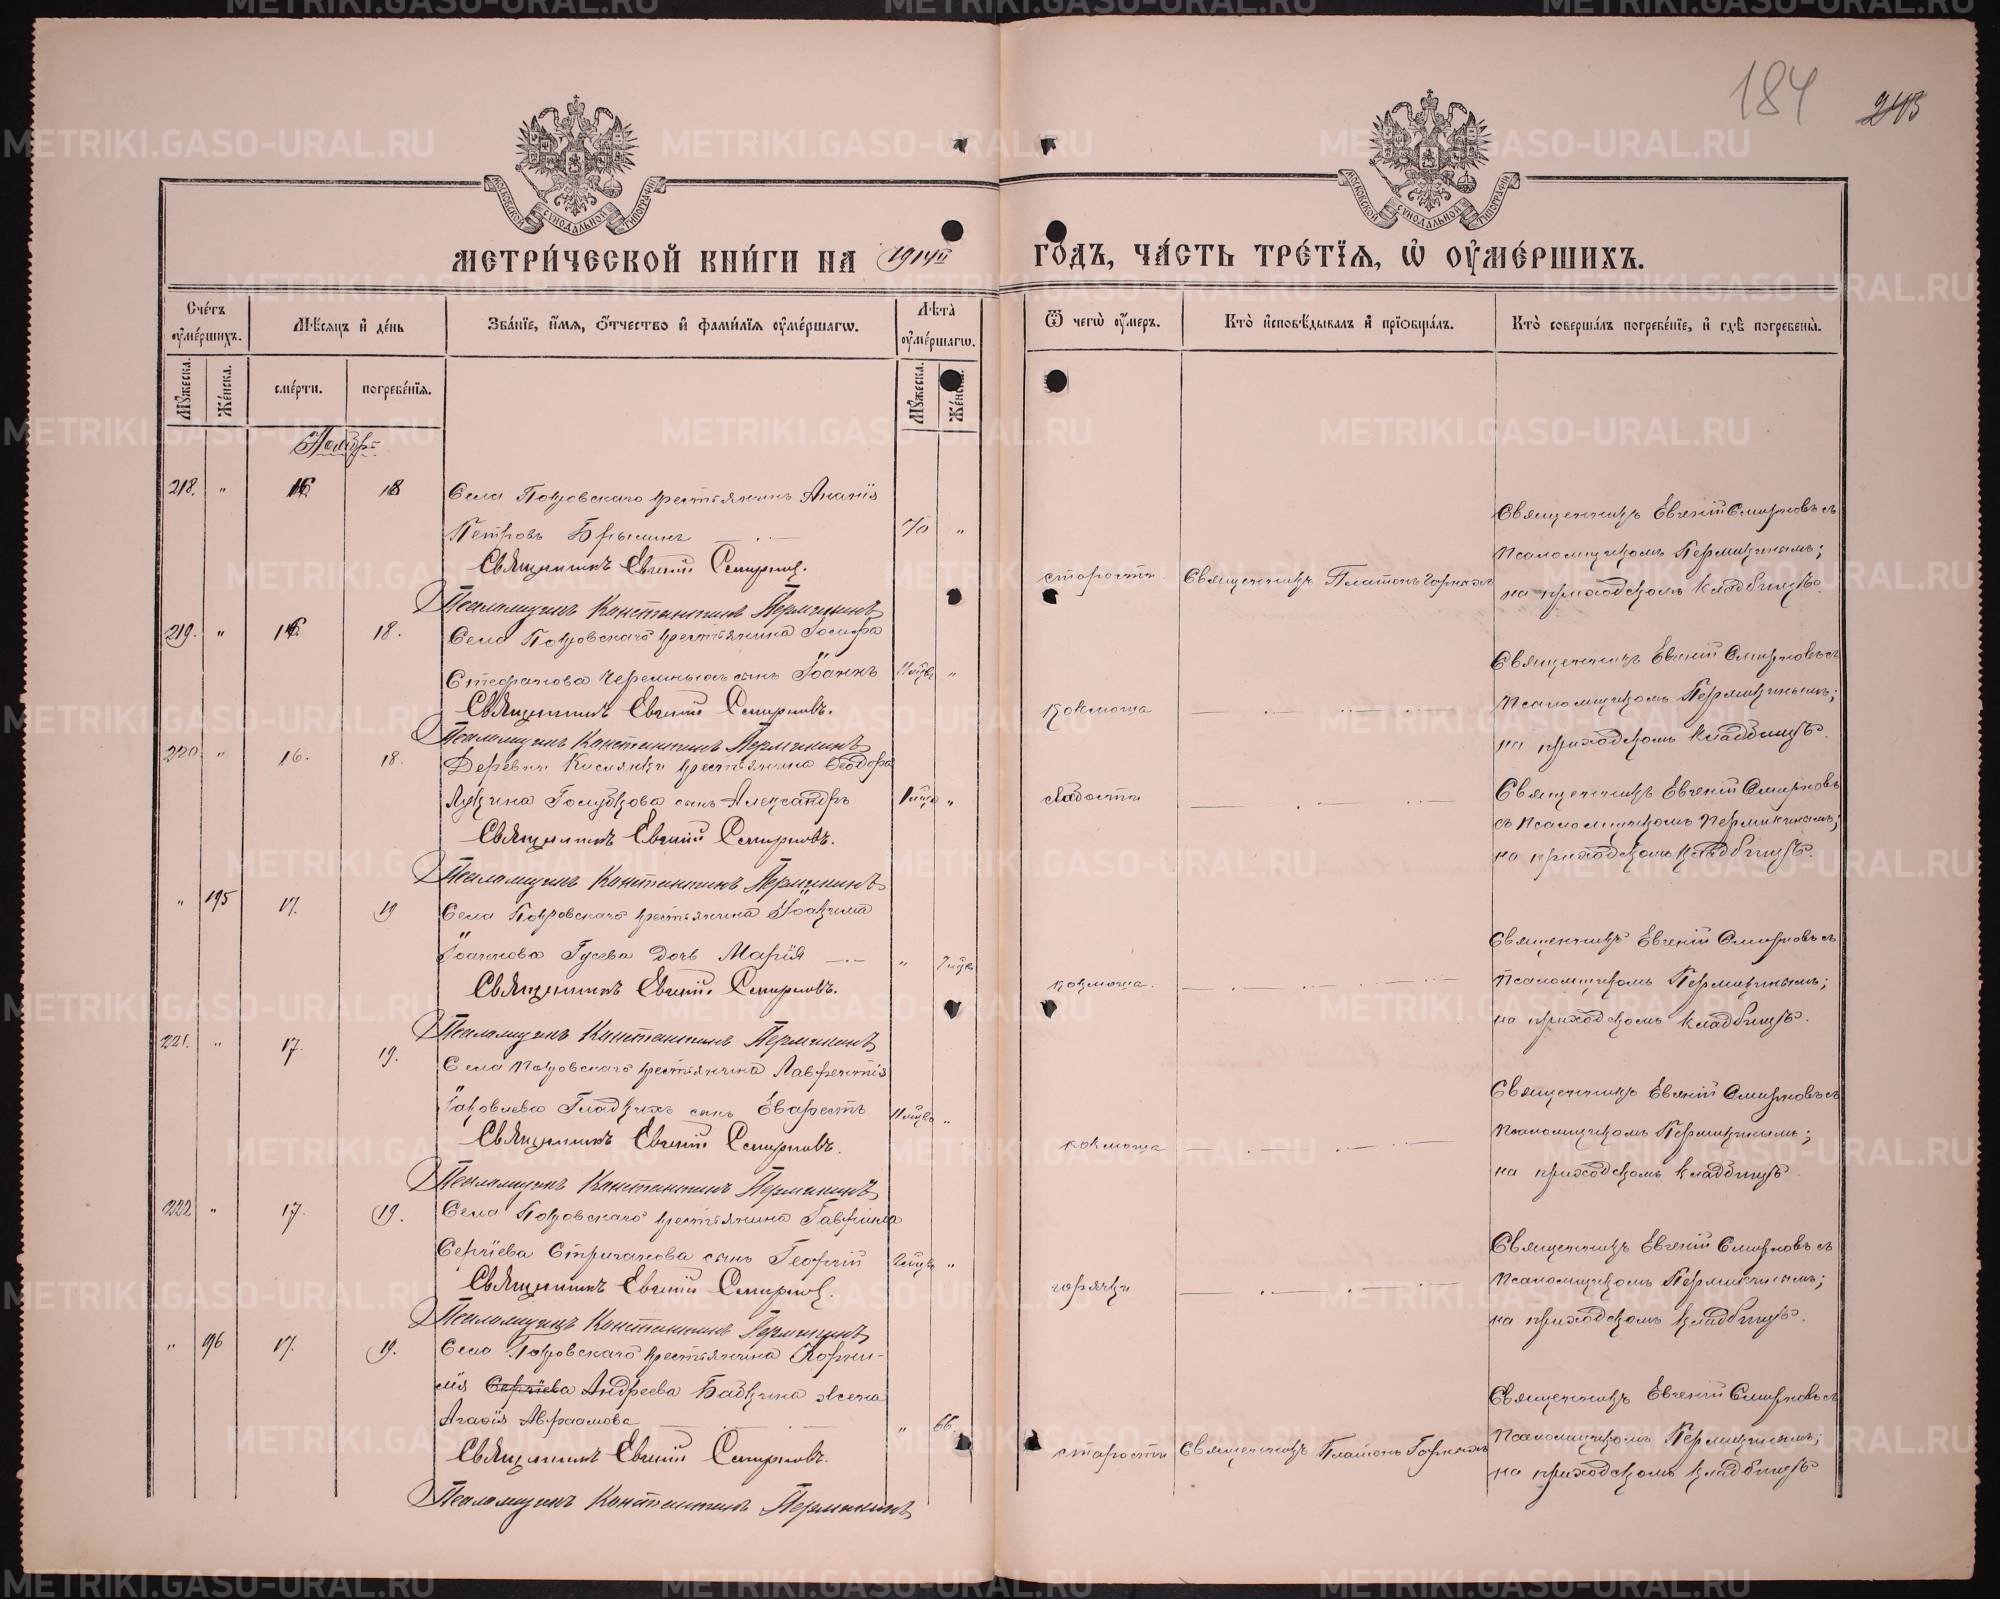 184
243
МОСКОВСКОЙ СУНОДАЛЬНОЙ ТИПОГРАФІИ
МОСКОВСКОЙ СУНОДАЛЬНОЙ ТИПОГРАФІИ
МЕТРИ́ЧЕСКОЙ КНИ́ГИ НА 1914й ГО́ДЪ, ЧА́СТЬ ТРЕ́ТІЯ, Ѡ ОУ҆МЕ́РШИХЪ.
Сче́тъ оу҆ме́ршихъ.
Мѣ́сяцъ и҆ де́нь
Зва́нїе, и҆́мя, ѻ҆́тчество и҆ фами́лїя оу҆ме́ршагѡ.
Лѣ́та оу҆ме́ршагѡ.
Ѿ чегѡ̀ оу҆́меръ.
Кто̀ и҆сповѣ́дывалъ и҆ прїобща́лъ.
Кто̀ соверша́лъ погребе́нїе, и҆ гдѣ̀ погребены̀.
Му́жеска.
Же́нска.
сме́рти.
погребе́нїя.
Му́жеска.
Же́нска.
Ноябрь
218. " 16 18 Села Покровскаго крестьянинъ Ананія
Петровъ Брысинъ 70 "
Священникъ Евгеній Смирновъ.
Псаломщикъ Константинъ Пермикинъ
старости. Священникъ Платонъ Горныхъ
Священникъ Евгеній Смирновъ съ
Псаломщикомъ Пермикинымъ;
на приходскомъ кладбищѣ.
219. " 16 18. Села Покровскаго крестьянина Іосифа
Стефанова Черемныхъ сынъ Іоаннъ "
Священникъ Евгеній Смирновъ.
Псаломщикъ Константинъ Пермикинъ
коклюша
Священникъ Евгеній Смирновъ съ
Псаломщикомъ Пермикинымъ;
на приходскомъ кладбищѣ.
220. " 16. 18. Деревни Кислянки крестьянина Ѳеодора
Лукина Голубкова сынъ Александръ "
Священникъ Евгеній Смирновъ.
Псаломщикъ Константинъ Пермикинъ
слабости
Священникъ Евгеній Смирновъ
съ Псаломщикомъ Пермикинымъ;
на приходскомъ кладбищѣ.
" 195 17. 19 Села Покровскаго крестьянина Іоакима
Іоаннова Гусева дочь Марія "
Священникъ Евгеній Смирновъ.
Псаломщикъ Константинъ Пермикинъ
коклюша.
Священникъ Евгеній Смирновъ съ
Псаломщикомъ Пермикинымъ;
на приходскомъ кладбищѣ.
221. " 17. 19. Села Покровскаго крестьянина Лаврентія
Іаковлева Гладкихъ сынъ Еварестъ "
Священникъ Евгеній Смирновъ.
Псаломщикъ Константинъ Пермикинъ
коклюша
Священникъ Евгеній Смирновъ съ
Псаломщикомъ Пермикинымъ;
на приходскомъ кладбищѣ.
222 " 17. 19. Села Покровскаго крестьянина Гавріила
Сергіева Стриганова сынъ Георгій "
Священникъ Евгеній Смирновъ.
Псаломщикъ Константинъ Пермикинъ
горячки
Священникъ Евгеній Смирновъ съ
Псаломщикомъ Пермикинымъ;
на приходскомъ кладбищѣ.
" 196 17. 19. Села Покровскаго крестьянина Корни-
лія Сергіева Андреева Бабкина жена
Агафія Авраамова " 66.
Священникъ Евгеній Смирновъ.
Псаломщикъ Константинъ Пермикинъ
старости Священникъ Платонъ Горныхъ
Священникъ Евгеній Смирновъ съ
Псаломщикомъ Пермикинымъ;
на приходскомъ кладбищѣ
METRIKI.GASO-URAL.RU